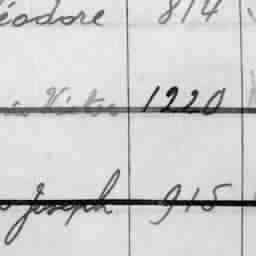 éodore 814
Victor 1220
Joseph 915